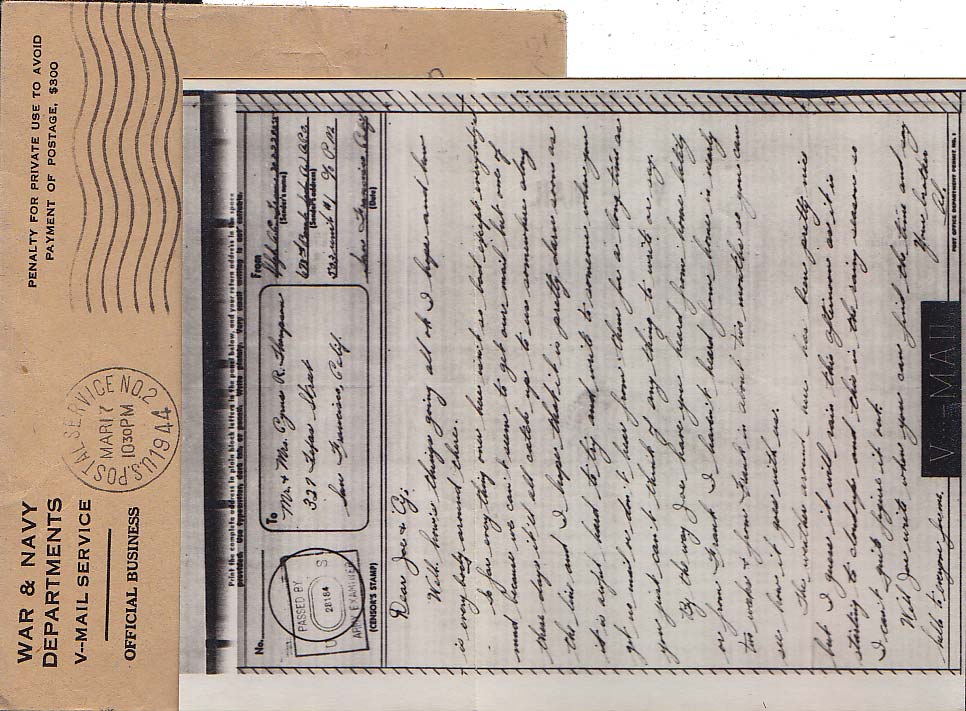 WAR & NAVY
DEPARTMENTS
V--MAIL SERVICE
OFFICIAL BUSINESS
PENALTY FOR PRIVATE USE TO AVOID
PAYMENT OF POSTAGE, $300
U.S. POSTAL SERVICE NO. 2
MAR 17
1030 PM
1944
Print the complete address in plain block letters in the panel below, and your return address in the space
provided. Use typewriter, dark ink, or pencil. Write plainly. Very small writing is not suitable.
No.
To
Mr. & Mrs. R. Thompson
327 Texas Street
San Francisco, Calif.
From
(Sender's name)
(Sender's address)
322 unit #1 % P.M.
San Francisco Calif
(Date)
PASSED BY
U S
28184
ARMY EXAMINER
(CENSOR'S STAMP)
Dear Joe & Cy:
Well, how're things going all ok I hope and how
is every body around there.
So far every thing over here isn't so bad except everybodys
mad because we can't seem to get our mail but one of
these days it'll all catch up to us somewhere along
the line and I hope that it is pretty darn soon as
it is awful hard to try and write to someone when you
get no mail or don't hear from them for a long time as
you just can't think of any thing to write or say.
By the way Joe have you heard from home lately
or from Frank I haven't heard from home in nearly
two weeks & from Frank in about two months so you can
see how it goes with me.
The weather around here has been pretty nice
but I guess it will rain this afternoon as it is
starting to cloud up and this in the rainy season so
I can't quite figure it out.
Well Joe write when you can find the time and my
hello to everyone from home,
Your brother
Al.
V···MAIL
POST OFFICE DEPARTMENT PERMIT NO.